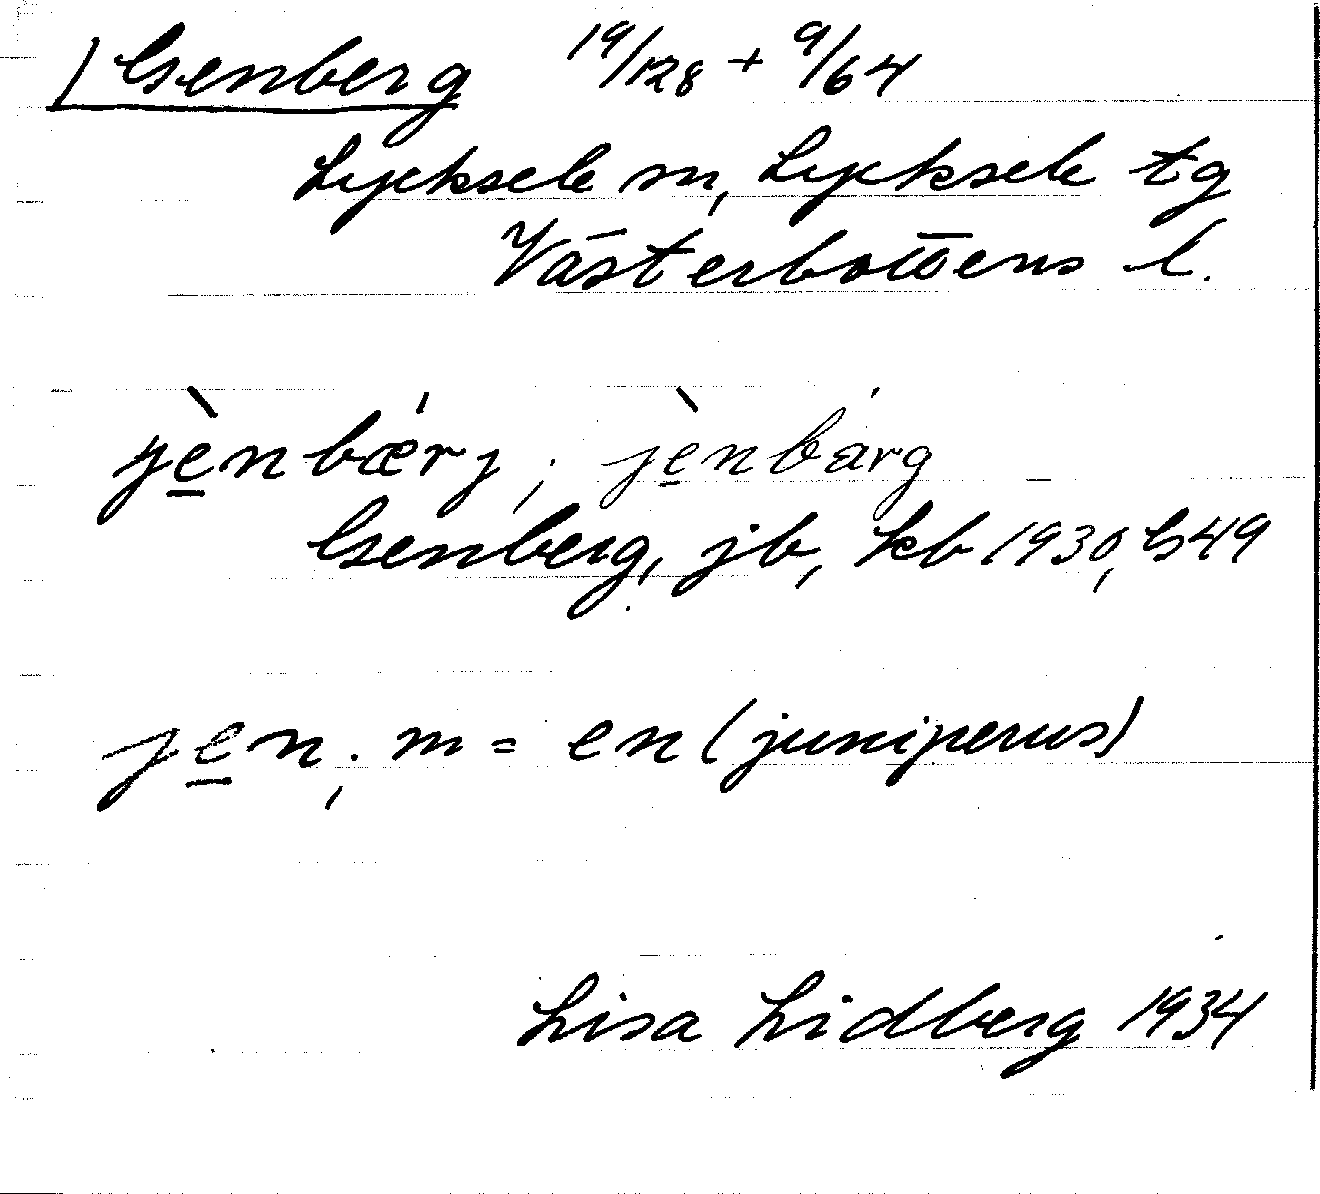 Genberg 19/128 + 9/64
Lycksele sn, Lycksele tg
Västerbottens l.
jènbǽrj; jènbárg
Genberg, jb, kb 1930, G49
jen; m = en (juniperus)
Lisa Lidberg 1934